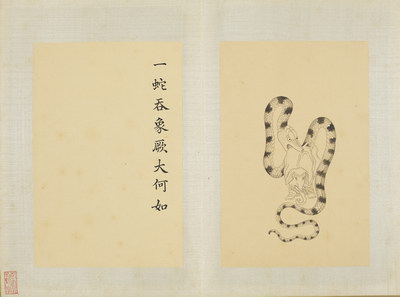 一蛇吞象厥大何如